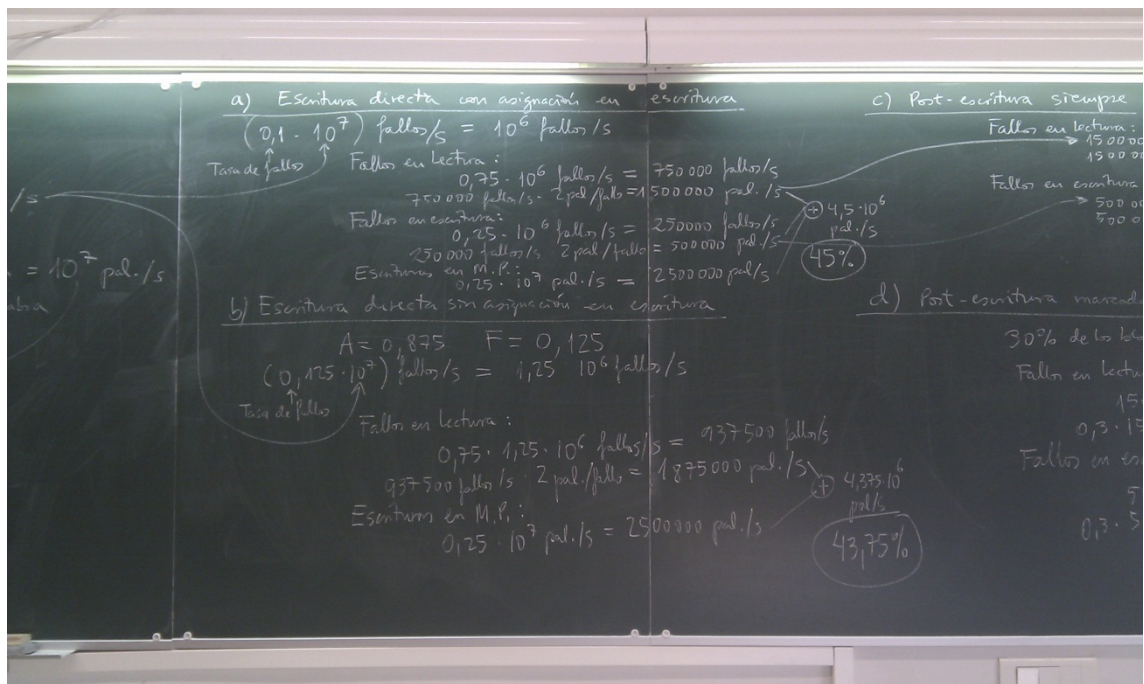 /s
= 10⁷ pal./s
a) Escritura directa con asignación en escritura
(0,1 · 10⁷) fallos/s = 10⁶ fallos/s
Tasa de fallos
Fallos en Lectura:
0,75 · 10⁶ fallos/s = 750 000 fallos/s
750 000 fallos/s · 2 pal/fallo = 1 500 000 pal./s
Fallos en escritura:
0,25 · 10⁶ fallos/s = 250 000 fallos/s
250 000 fallos/s 2 pal/fallo = 500 000 pal/s
Escrituras en M.P.:
0,25 · 10⁷ pal./s = 2500 000 pal/s
+ 4,5·10⁶
pal./s
45%
b) Escritura directa sin asignación en escritura
A = 0,875 F = 0,125
(0,125·10⁷) fallos/s = 1,25 10⁶ fallos/s
Tasa de fallos
Fallos en Lectura:
0,75 · 1,25 · 10⁶ fallos/s = 937 500 fallos/s
937 500 fallos/s · 2 pal./fallo = 1 875 000 pal./s
Escrituras en M.P.:
0,25 · 10⁷ pal./s = 2500 000 pal./s
+ 4,375·10⁶
pal/s
43,75%
c) Post-escritura siempre
Fallos en Lectura:
1500 00
1500 00
Fallos en escritura
500 00
500 0
d) Post-escritura marcad
30% de los blo
Fallos en Lectu
15
0,3 · 15
Fallos en es
5
0,3 · 5